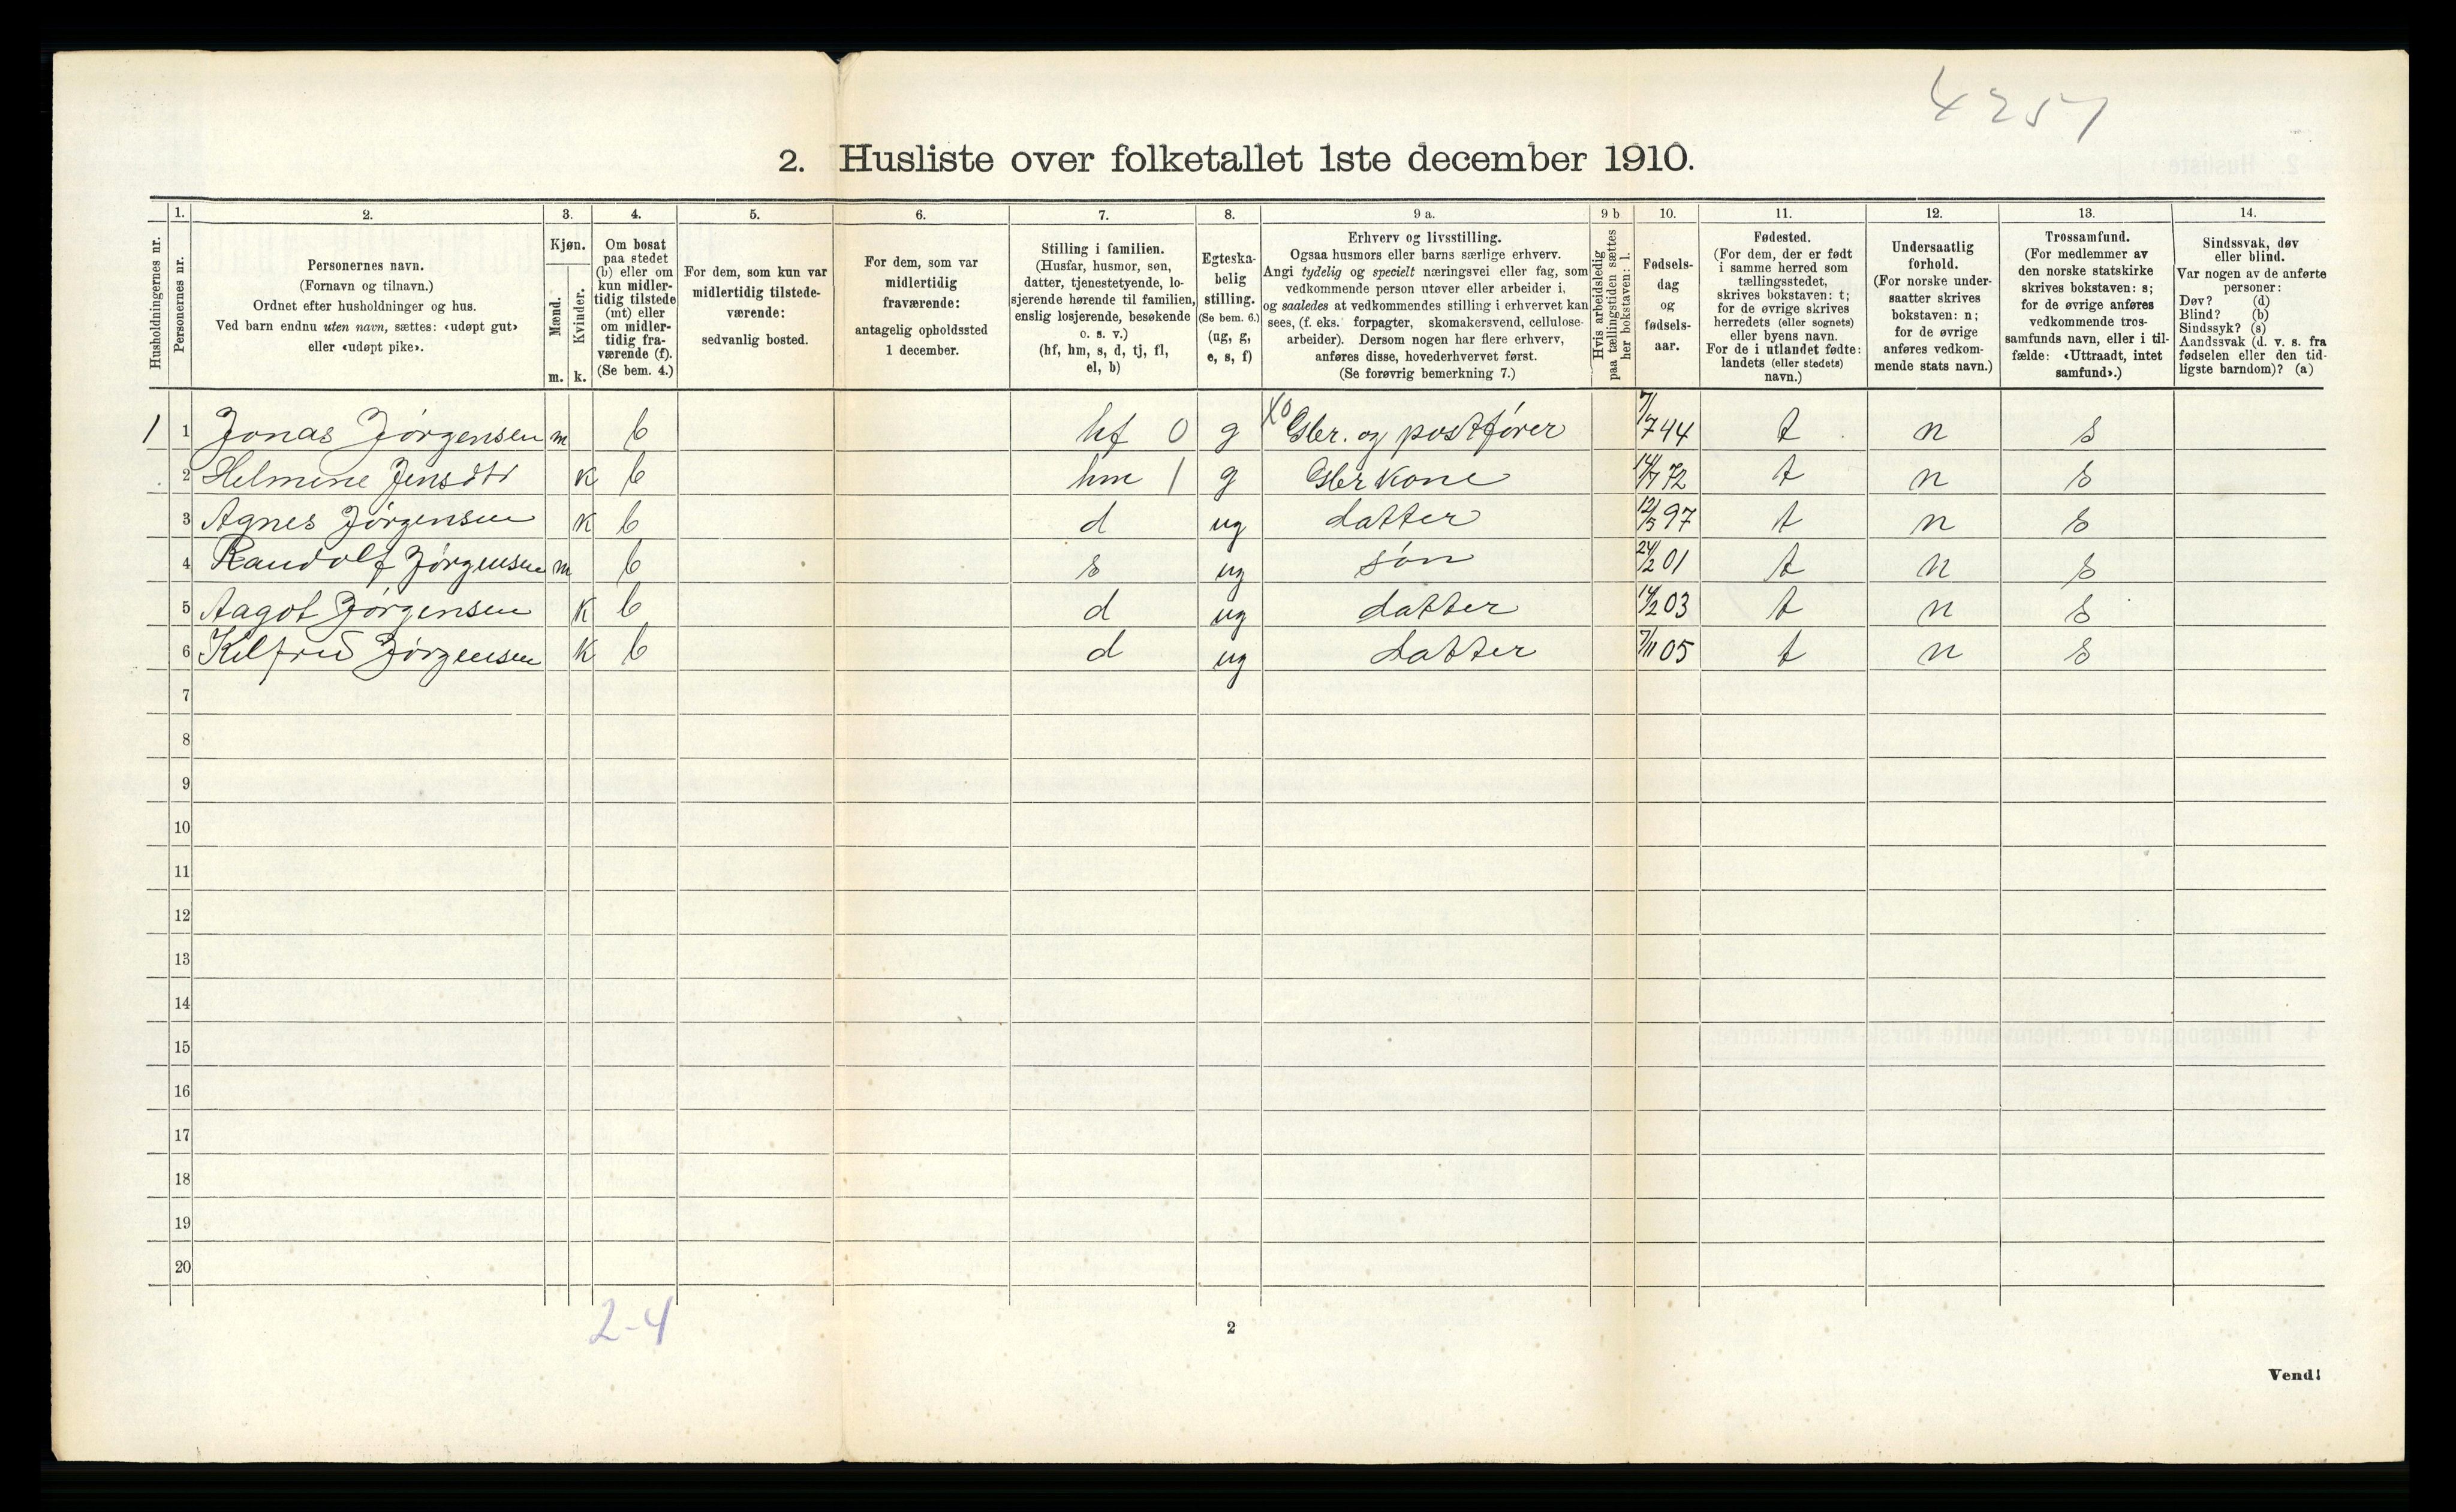 4257
2. Husliste over folketallet 1ste december 1910.
Husholdningernes nr.
1. Personernes nr.
2. Personernes navn.
(Fornavn og tilnavn.)
Ordnet efter husholdninger og hus.
Ved barn endnu uten navn, sættes: «udøpt gut»
eller «udøpt pike».
3. Kjøn.
Mænd. Kvinder.
m. k.
4. Om bosat
paa stedet
(b) eller om
kun midler-
tidig tilstede
(mt) eller
om midler-
tidig fra-
værende (f).
(Se bem. 4.)
5. For dem, som kun var
midlertidig tilstede-
værende:
sedvanlig bosted.
6. For dem, som var
midlertidig
fraværende:
antagelig opholdssted
1 december.
7. Stilling i familien.
(Husfar, husmor, søn,
datter, tjenestetyende, lo-
sjerende hørende til familien,
enslig losjerende, besøkende
o. s. v.)
(hf, hm, s, d, tj, fl,
el, b)
8. Egteska-
belig
stilling.
(Se bem. 6.)
(ug, g,
e, s, f)
9 a. Erhverv og livsstilling.
Ogsaa husmors eller barns særlige erhverv.
Angi tydelig og specielt næringsvei eller fag, som
vedkommende person utøver eller arbeider i,
og saaledes at vedkommendes stilling i erhvervet kan
sees, (f. eks. forpagter, skomakersvend, cellulose-
arbeider). Dersom nogen har flere erhverv,
anføres disse, hovederhvervet først.
(Se forøvrig bemerkning 7.)
9 b Hvis arbeidsledig
paa tællingstiden sættes
her bokstaven: l.
10. Fødsels-
dag
og
fødsels-
aar.
11. Fødested.
(For dem, der er født
i samme herred som
tællingsstedet,
skrives bokstaven: t;
for de øvrige skrives
herredets (eller sognets)
eller byens navn.
For de i utlandet fødte:
landets (eller stedets)
navn.)
12. Undersaatlig
forhold.
(For norske under-
saatter skrives
bokstaven: n;
for de øvrige
anføres vedkom-
mende stats navn.)
13. Trossamfund.
(For medlemmer av
den norske statskirke
skrives bokstaven: s;
for de øvrige anføres
vedkommende tros-
samfunds navn, eller i til-
fælde: «Uttraadt, intet
samfund».)
14. Sindssvak, døv
eller blind.
Var nogen av de anførte
personer:
Døv? (d)
Blind? (b)
Sindssyk? (s)
Aandssvak (d. v. s. fra
fødselen eller den tid-
ligste barndom)? (a)
1 1 Jonas Jørgensen m b hf 0 g X0 Gbr. og postfører 7/7 44 t n s
2 Helmine Jensdtr k b hm 1 g Gbr kone 14/7 72 t n s
3 Agnes Jørgensen k b d ug datter 12/5 97 t n s
4 Randolf Jørgensen m b s ug søn 24/2 01 t n s
5 Aagot Jørgensen k b d ug datter 14/2 03 t n s
6 Kilfrid Jørgensen k b d ug datter 7/11 05 t n s
7
8
9
10
11
12
13
14
15
16
17
18
19
20
2-4
2
Vend!